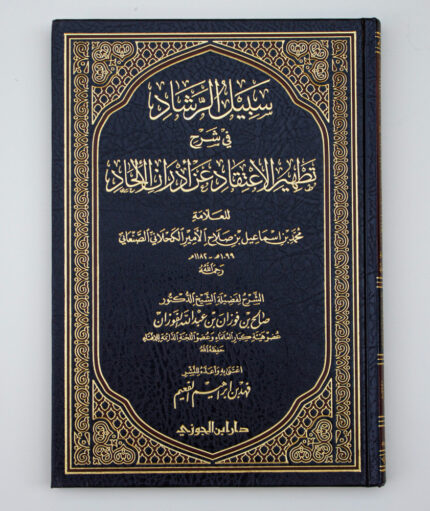 سبيل الرشاد
في شرح
تطهير الاعتقاد عن أدران الإلحاد
للعلامة
محمد بن إسماعيل بن صلاح الأمير الكحلاني الصنعاني
١٠٩٩هـ - ١١٨٢هـ
رحمه الله
الشرح لفضيلة الشيخ الدكتور
صالح بن فوزان بن عبد الله الفوزان
عضو هيئة كبار العلماء وعضو اللجنة الدائمة للإفتاء
حفظه الله
اعتنى به وأعده للنشر
فهد بن إبراهيم الفعيم
دار ابن الجوزي